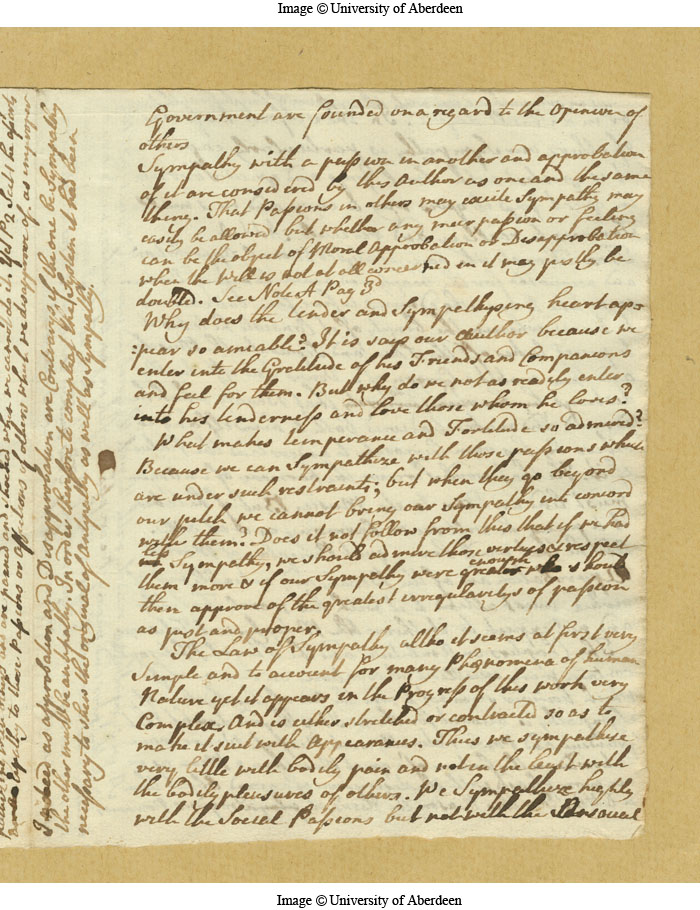 Image © University of Aberdeen
Government are founded on a regard to the Opinion of
others
Sympathy with a passion in another and approbation
of it are considered by this Author as one and the same
thing. That Passions in others may excite Sympathy may
easily be allowed but whether any meer passion or feeling
can be the object of Moral Approbation or Disapprobation
when the Will is not at all concerned in it may justly be
doubted. See Note A Pag 3d
Why does the tender and Sympathysing heart ap-
:pear so ameable? It is says our Author because we
enter into the Gratitude of his Friends and Companions
and feel for them. But why do we not as readily enter
into his tenderness and love those whom he loves?
What makes temperance and Fortitude so admired?
Because we can Sympathize with those passions which
are under such restraints, but when they go beyond
our pitch we cannot bring our Sympathy into concord
with them? Does it not follow from this that if we had
Sympathy, we should admire those vertues & respect
them more & if our Sympathy were enough greater we should
then approve of the greatest irregularitys of passion
as just and proper.
The Law of Sympathy altho it seems at first very
Simple and to account for many Phænomena of human
Nature yet it appears in the Progress of this work very
Complex, And is either stretched or contracted so as to
make it suit with Appearances. Thus we sympathise
very little with bodily pain and not in the least with
the bodily pleasures of others. We Sympathize highly
with the Social Passions but not with the Unsocial
and we are pained and shocked when we cannot do it
to those Passions or affections of others which we disapprove of as improper
Indeed as approbation and Disapprobation are Contrarys, if the one be Sympathy
the other must be antipathy. In order therefore to compleat the System it had been
necessary to shew the original of antipathy as well as Sympathy.
Image © University of Aberdeen